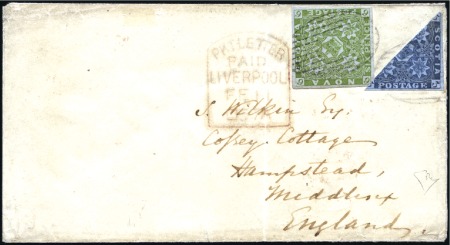 PKT. LETTER
PAID
LIVERPOOL
NOVA
SCOTIA
POSTAGE
J. Wilkin Esq.
Cossey Cottage
Hampstead,
Middlesex
England.